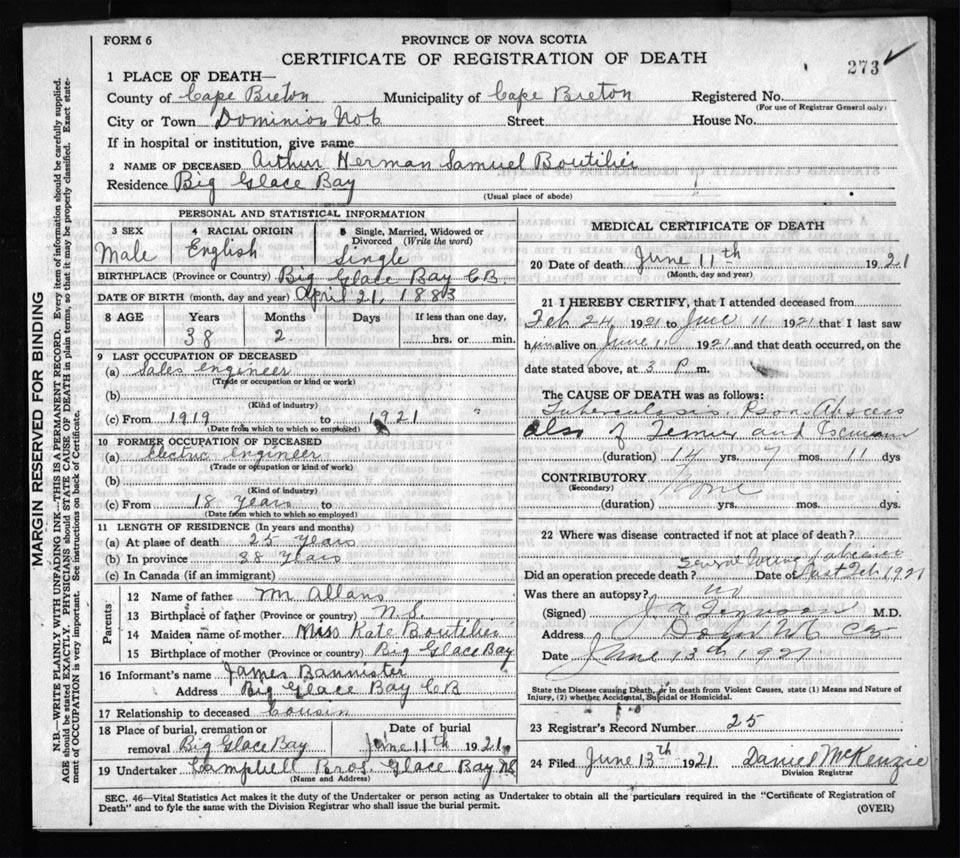 FORM 6
PROVINCE OF NOVA SCOTIA
CERTIFICATE OF REGISTRATION OF DEATH
273
1 PLACE OF DEATH—
County of Cape Breton Municipality of Cape Breton Registered No.
(For use of Registrar General only)
City or Town Dominion No 6 Street House No.
If in hospital or institution, give name
2 NAME OF DECEASED Arthur Herman Samuel Boutilier
Residence Big Glace Bay
(Usual place of abode)
PERSONAL AND STATISTICAL INFORMATION
3 SEX 4 RACIAL ORIGIN 5 Single, Married, Widowed or Divorced (Write the word)
Male English Single
BIRTHPLACE (Province or Country) Big Glace Bay C.B.
DATE OF BIRTH (month, day and year) April 21, 1883
8 AGE Years Months Days If less than one day,
38 2 hrs. or min.
9 LAST OCCUPATION OF DECEASED
(a) Sales engineer
(Trade or occupation or kind or work)
(b)
(Kind of industry)
(c) From 1919 to 1921
(Date from which to which so employed)
10 FORMER OCCUPATION OF DECEASED
(a) Electric engineer
(Trade or occupation or kind of work)
(b)
(Kind of industry)
(c) From 18 years to
(Date from which to which so employed)
11 LENGTH OF RESIDENCE (In years and months)
(a) At place of death 25 years
(b) In province 38 years
(c) In Canada (if an immigrant)
Parents
12 Name of father
13 Birthplace of father (Province or country) N.S.
14 Maiden name of mother Miss Kate Boutilier
15 Birthplace of mother (Province or country) Big Glace Bay
16 Informant's name James Bannister
Address Big Glace Bay C B
17 Relationship to deceased Cousin
18 Place of burial, cremation or removal Big Glace Bay
Date of burial June 11th 1921
19 Undertaker Campbell Bros. Glace Bay NS
(Name and Address)
MEDICAL CERTIFICATE OF DEATH
20 Date of death June 11th 1921
(Month, day and year)
21 I HEREBY CERTIFY, that I attended deceased from
Feb 24 1921 to June 11 1921 that I last saw
him alive on June 11 1921 and that death occurred, on the
date stated above, at 3 P m.
The CAUSE OF DEATH was as follows:
Tuberculosis, Psoas Abscess
also of Femur and
(duration) 14 yrs. 7 mos. 11 dys
CONTRIBUTORY None
(Secondary)
(duration) yrs. mos. dys.
22 Where was disease contracted if not at place of death?
Did an operation precede death? Several Date of Last Feb. 1921
Was there an autopsy? no
(Signed) M.D.
Address
Date June 13th 1921
State the Disease causing Death, or in death from Violent Causes, state (1) Means and Nature of
Injury, (2) whether Accidental, Suicidal or Homicidal.
23 Registrar's Record Number 25
24 Filed June 13th 1921 Daniel McKenzie
Division Registrar
SEC. 46—Vital Statistics Act makes it the duty of the Undertaker or person acting as Undertaker to obtain all the particulars required in the "Certificate of Registration of
Death" and to fyle the same with the Division Registrar who shall issue the burial permit.
(OVER)
MARGIN RESERVED FOR BINDING
N.B.—WRITE PLAINLY WITH UNFADING INK—THIS IS A PERMANENT RECORD. Every item of information should be carefully supplied.
AGE should be stated EXACTLY. PHYSICIANS should STATE CAUSE OF DEATH in plain terms, so that it may be properly classified. Exact state-
ment of OCCUPATION is very important. See instructions on back of Certificate.